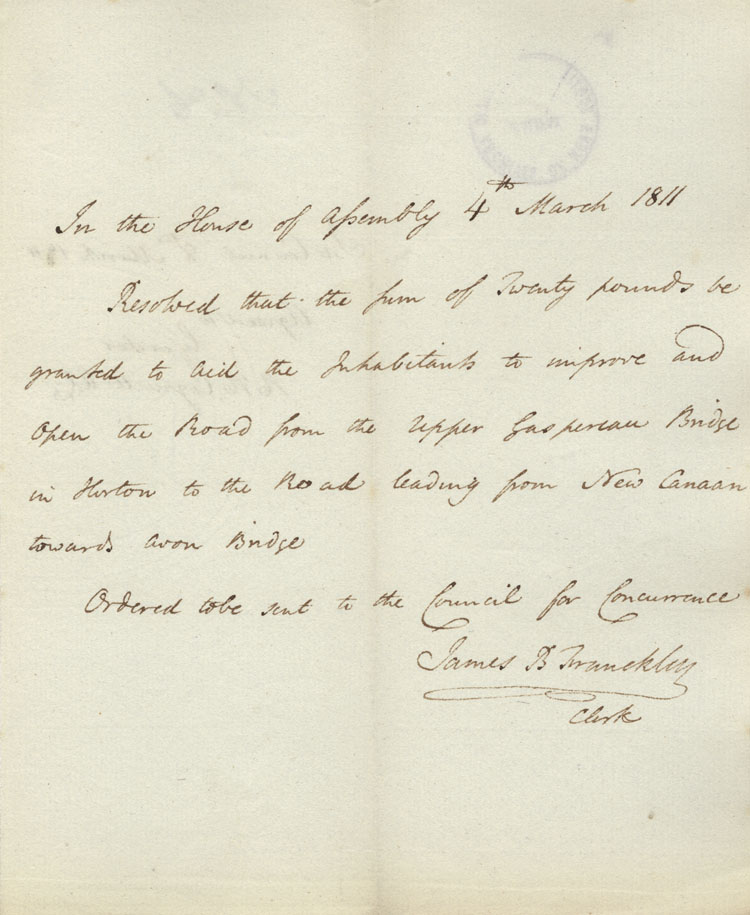 In the House of Assembly 4th March 1811
Resolved that the sum of Twenty pounds be
granted to aid the Inhabitants to improve and
open the Road from the Upper Gaspereau Bridge
in Horton to the Road leading from New Canaan
towards Avon Bridge
Ordered to be sent to the Council for Concurrence
James B Franckley
Clerk